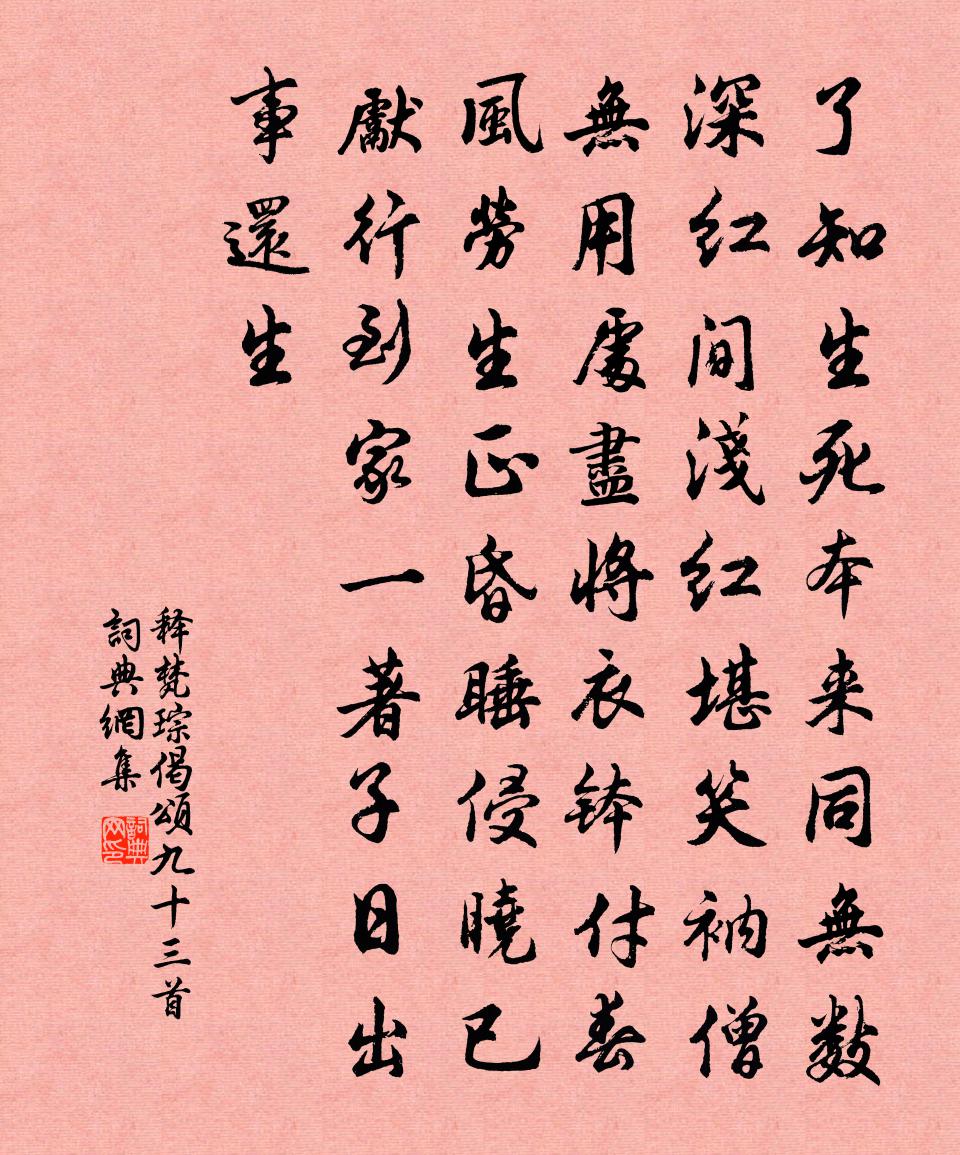 了知生死本来同無數
深红間淺红堪笑衲僧
無用處盡將衣鉢付春
風勞生正昏睡侵曉已
獻行到家一著子日出
事還生
释梵琮偈頌九十三首
詞典網集
詞典
网印